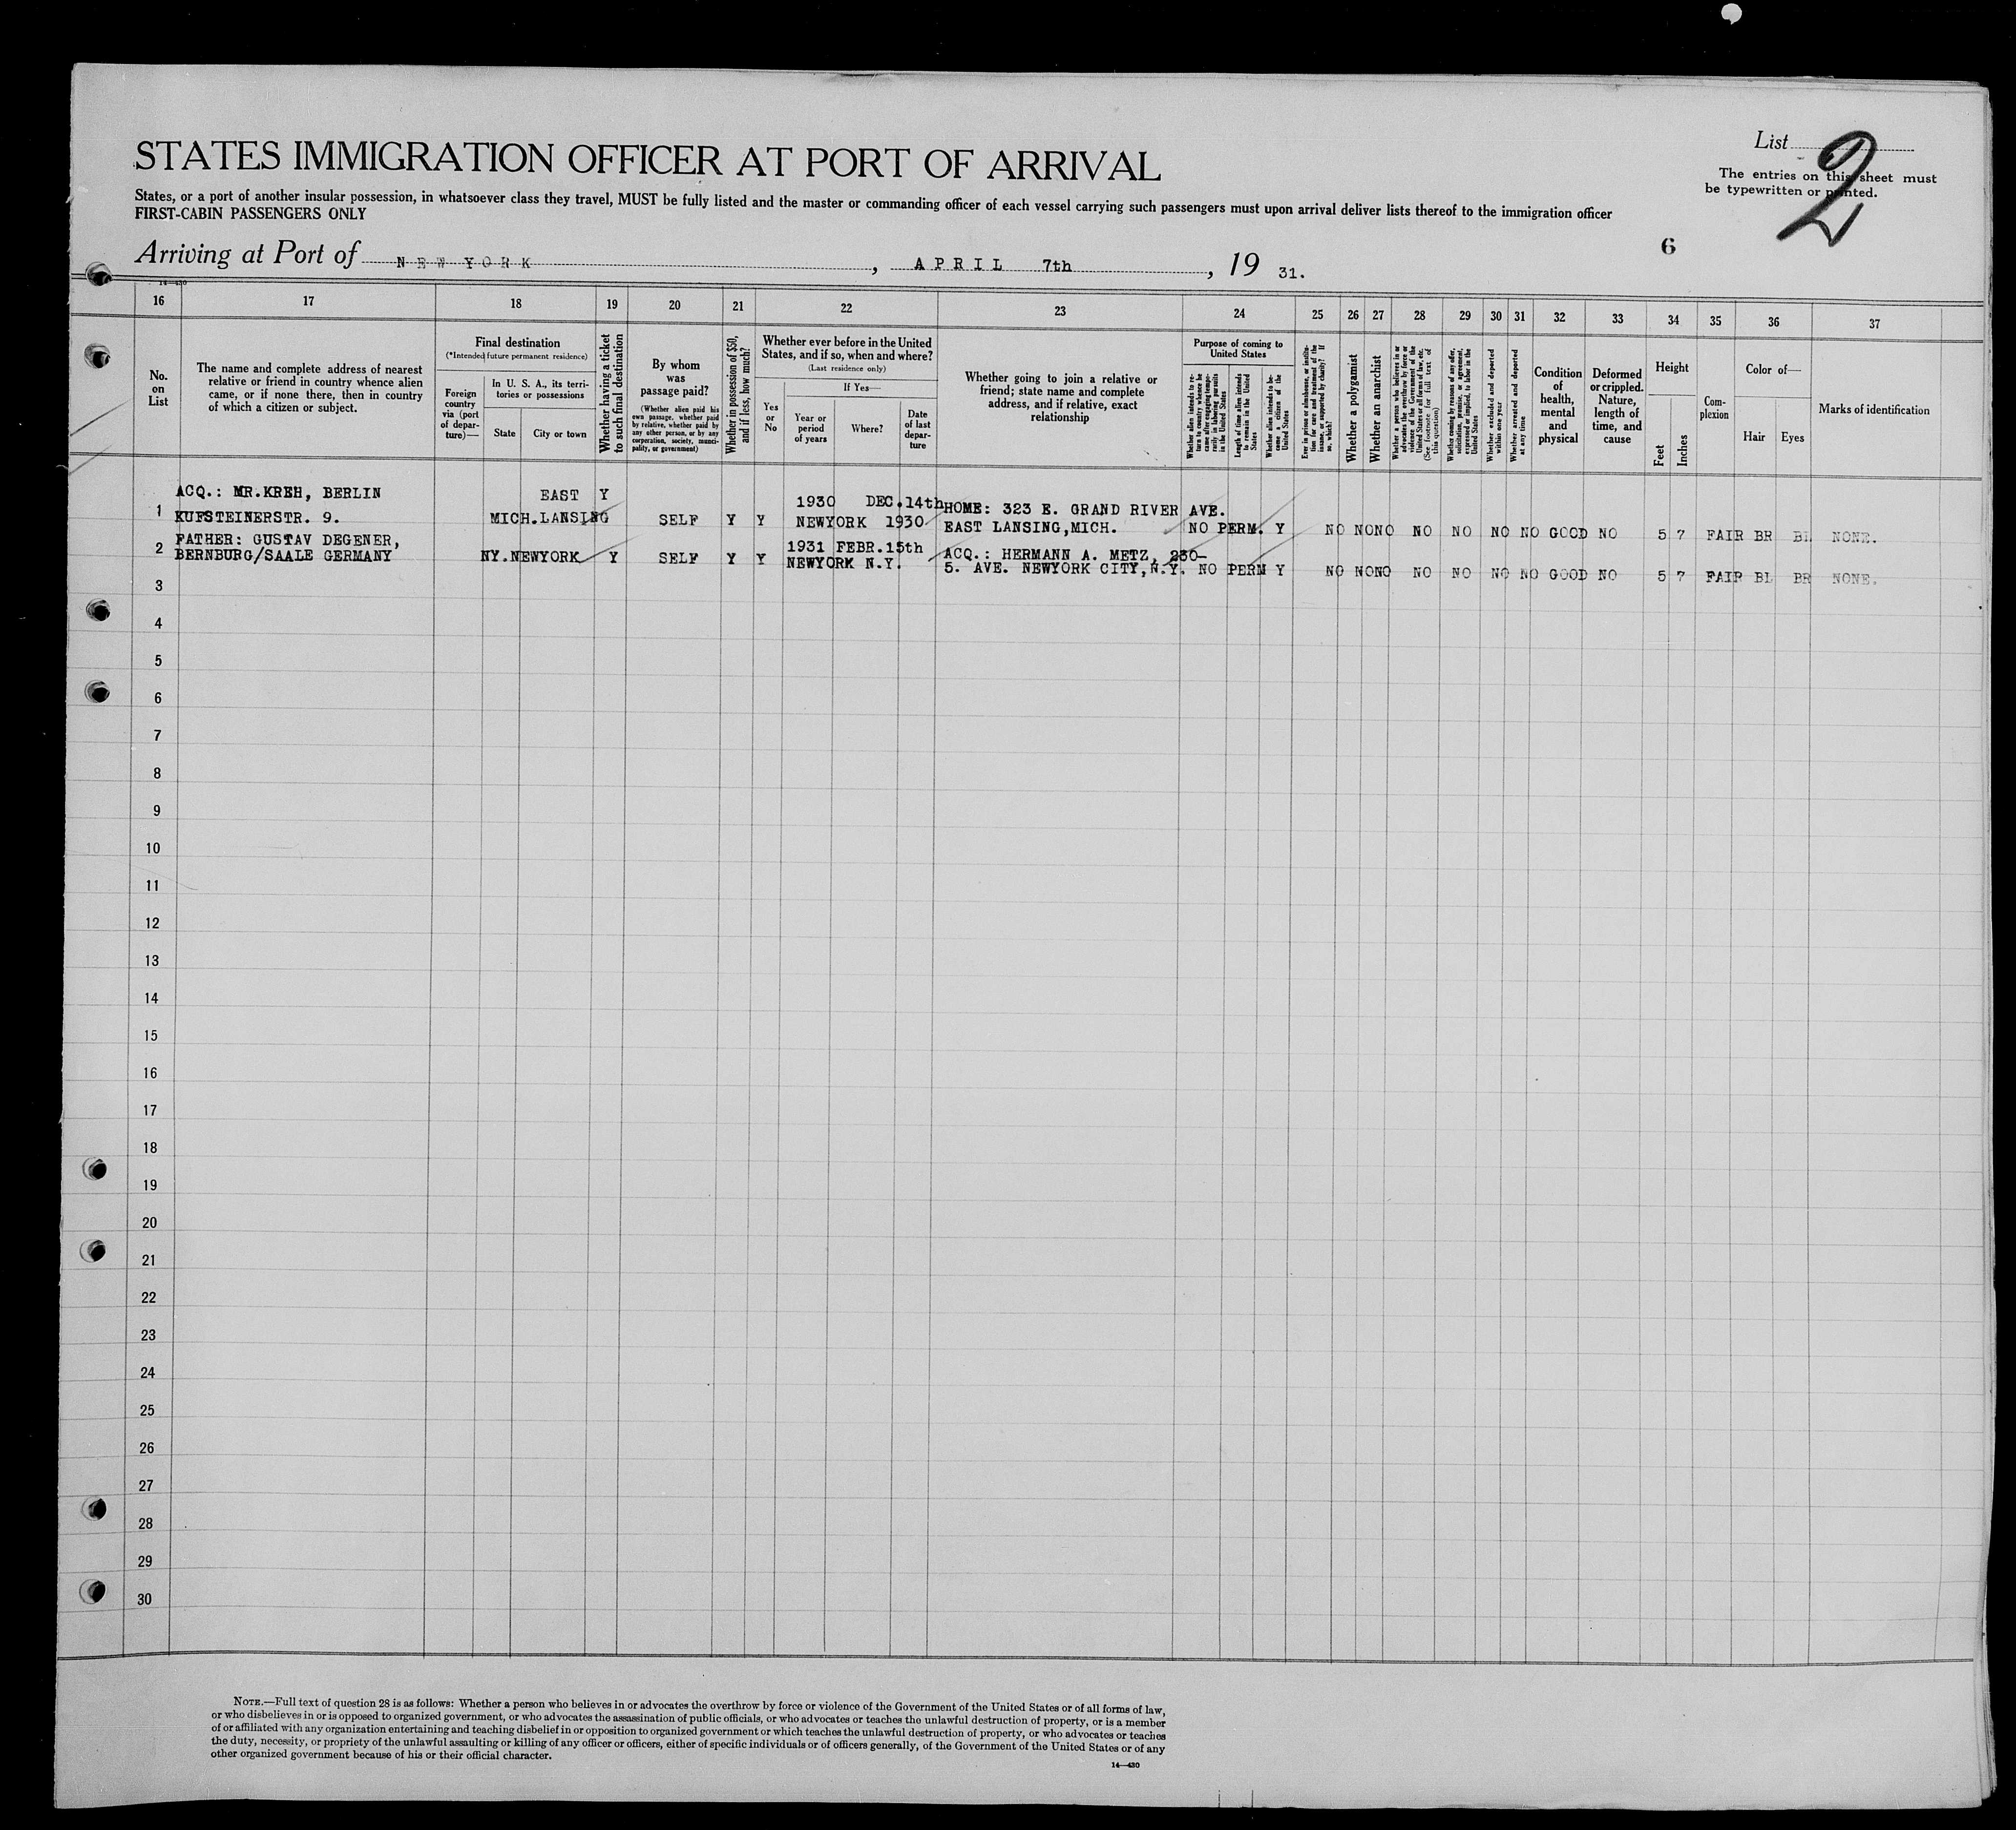 STATES IMMIGRATION OFFICER AT PORT OF ARRIVAL
List 2
The entries on this sheet must
be typewritten or printed.
States, or a port of another insular possession, in whatsoever class they travel, MUST be fully listed and the master or commanding officer of each vessel carrying such passengers must upon arrival deliver lists thereof to the immigration officer
FIRST-CABIN PASSENGERS ONLY
6
Arriving at Port of NEW YORK, APRIL 7th, 19 31.
14—430
16 17 18 19 20 21 22 23 24 25 26 27 28 29 30 31 32 33 34 35 36 37
No.
on
List
The name and complete address of nearest
relative or friend in country whence alien
came, or if none there, then in country
of which a citizen or subject.
Final destination
(*Intended future permanent residence)
Foreign
country
via (port
of depar-
ture)—
In U. S. A., its terri-
tories or possessions
State
City or town
Whether having a ticket
to such final destination
By whom
was
passage paid?
(Whether alien paid his
own passage, whether paid
by relative, whether paid by
any other person, or by any
corporation, society, munici-
pality, or government)
Whether in possession of $50,
and if less, how much?
Whether ever before in the United
States, and if so, when and where?
(Last residence only)
Yes
or
No
If Yes—
Year or
period
of years
Where?
Date
of last
depar-
ture
Whether going to join a relative or
friend; state name and complete
address, and if relative, exact
relationship
Purpose of coming to
United States
Whether alien intends to re-
turn to country whence he
came after engaging tempo-
rarily in laboring pursuits
in the United States
Length of time alien intends
to remain in the United
States
Whether alien intends to be-
come a citizen of the
United States
Ever in prison or almshouse, or institu-
tion for care and treatment of the
insane, or supported by charity? If
so, which?
Whether a polygamist
Whether an anarchist
Whether a person who believes in or
advocates the overthrow by force or
violence of the Government of the
United States or all forms of law, etc.
(See footnote for full text of
this question)
Whether coming by reasons of any offer,
solicitation, promise, or agreement,
expressed or implied, to labor in the
United States
Whether excluded and deported
within one year
Whether arrested and deported
at any time
Condition
of
health,
mental
and
physical
Deformed
or crippled.
Nature,
length of
time, and
cause
Height
Feet
Inches
Com-
plexion
Color of—
Hair
Eyes
Marks of identification
ACQ.: MR.KREH, BERLIN EAST Y 1930 DEC.14th HOME: 323 E. GRAND RIVER AVE.
1 KUFSTEINERSTR. 9. MICH.LANSING SELF Y Y NEWYORK 1930 EAST LANSING,MICH. NO PERM. Y NO NO NO NO NO NO NO GOOD NO 5 7 FAIR BR BL NONE.
FATHER: GUSTAV DEGENER, 1931 FEBR.15th ACQ.: HERMANN A. METZ, 230-
2 BERNBURG/SAALE GERMANY NY.NEWYORK Y SELF Y Y NEWYORK N.Y. 5. AVE. NEWYORK CITY,N.Y. NO PERM Y NO NO NO NO NO NO NO GOOD NO 5 7 FAIR BL BR NONE.
3
4
5
6
7
8
9
10
11
12
13
14
15
16
17
18
19
20
21
22
23
24
25
26
27
28
29
30
NOTE.—Full text of question 28 is as follows: Whether a person who believes in or advocates the overthrow by force or violence of the Government of the United States or of all forms of law,
or who disbelieves in or is opposed to organized government, or who advocates the assassination of public officials, or who advocates or teaches the unlawful destruction of property, or is a member
of or affiliated with any organization entertaining and teaching disbelief in or opposition to organized government or which teaches the unlawful destruction of property, or who advocates or teaches
the duty, necessity, or propriety of the unlawful assaulting or killing of any officer or officers, either of specific individuals or of officers generally, of the Government of the United States or of any
other organized government because of his or their official character.
14—430